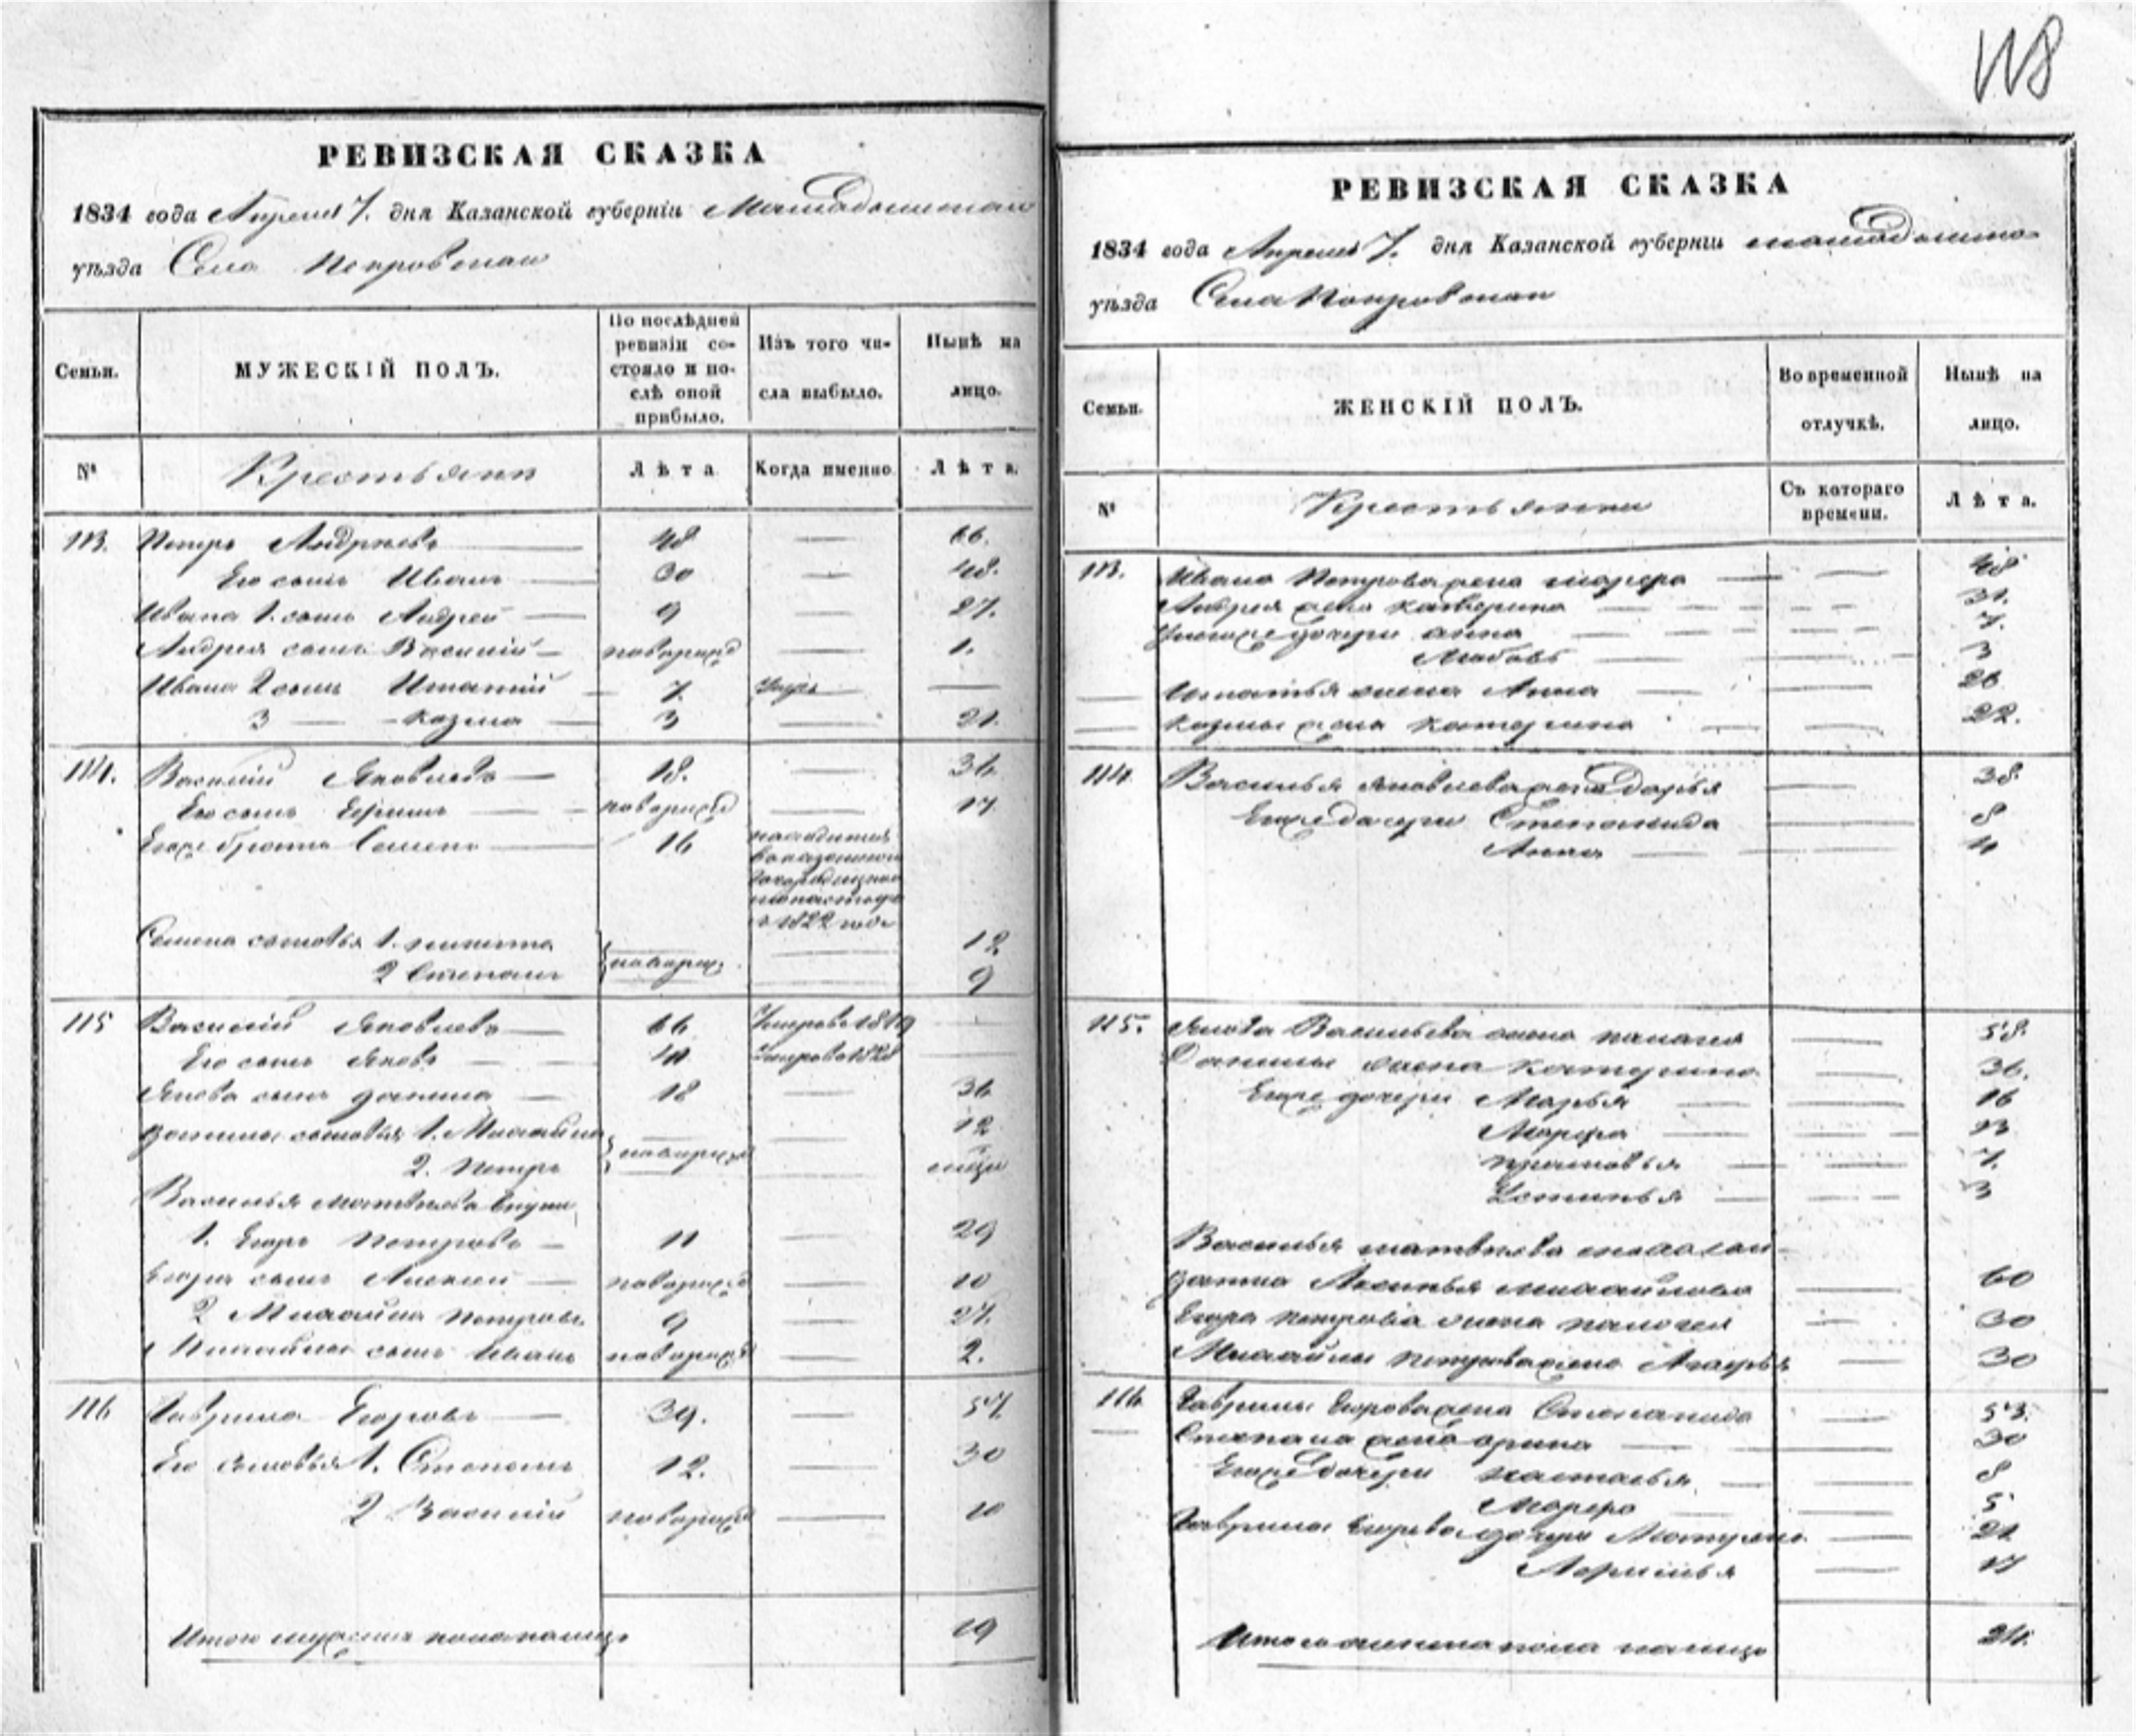 118
РЕВИЗСКАЯ СКАЗКА
1834 года Апреля 7. дня Казанской губерніи Мамадышскаго
уѣзда Села Покровскаго
Семьи.
МУЖЕСКІЙ ПОЛЪ.
По послѣдней ревизіи со-
стояло и по-
слѣ оной
прибыло.
Изъ того чи-
сла выбыло.
Нынѣ на
лицо.
№
Крестьяне
Лѣта
Когда именно
Лѣта.
113. Петръ Андреевъ 48 — 66.
Его сынъ Иванъ 30 — 48.
Ивана 1. сынъ Андрей 9 — 27.
Андрея сынъ Василій — новорожд — 1.
Ивана 2 сынъ Игнатій 7. Умре —
3 — Козма 3 — 21.
114. Василій Яковлевъ 18. — 36
Его сынъ новорожд — 17
Егоже братъ Семенъ 16
в 1822 годе
Семена сыновья 1. Никита 12
2 Степанъ новорож. 9
115 Василій 66 Умеръ в 18
Его сынъ Яковъ Умеръ в 1828
Якова сынъ Данила 18 — 36
Данилы сыновья 1. Михайла 12
2. Петръ новорожд
Василья Матвеева внуки
1. Егоръ Петровъ — 11 — 29
Егора сынъ Алексей — новорожд — 10
2 Михайла Петровъ 9 — 27.
Михайлы сынъ Иванъ новорожд — 2.
116 Гаврила Егоровъ 39. — 57.
Его сыновья 1. Степанъ 12. — 30
2 Василій новорожд — 10
Итого мужеска пола налицо 19
РЕВИЗСКАЯ СКАЗКА
1834 года Апреля 7. дня Казанской губерніи мамадышскаго
уѣзда Села Покровскаго
Семьи.
ЖЕНСКІЙ ПОЛЪ.
Во временной
отлучкѣ.
Нынѣ на
лицо.
№
Крестьянки
Съ котораго
времени.
Лѣта.
113. Ивана Петрова жена марфа — 48
Андрея жена катерина 31.
дочери анна 7.
Любовь 3
Игнатья жена Анна 26
козмы жена катерина 22.
114 Василья Яковлева жена Дарья 38
Егоже дочери Степанида 8
Анна
115. Якова Васильева жена палагея 58.
Данилы жена катерина 36.
Егоже дочери Марья 16
Марфа 13
прасковья 7.
Устинья 3
Василья матвеева
Аксинья михайлова 60
Егора петрова жена палагея 30
Михайлы петрова жена 30
116. Гаврилы Егорова жена Степанида 53.
Степана жена орина 30
Егоже дочери настасья 8
Марфа 5
Гаврилы Егорова дочери Матрена 21
17
Итого женска пола налицо